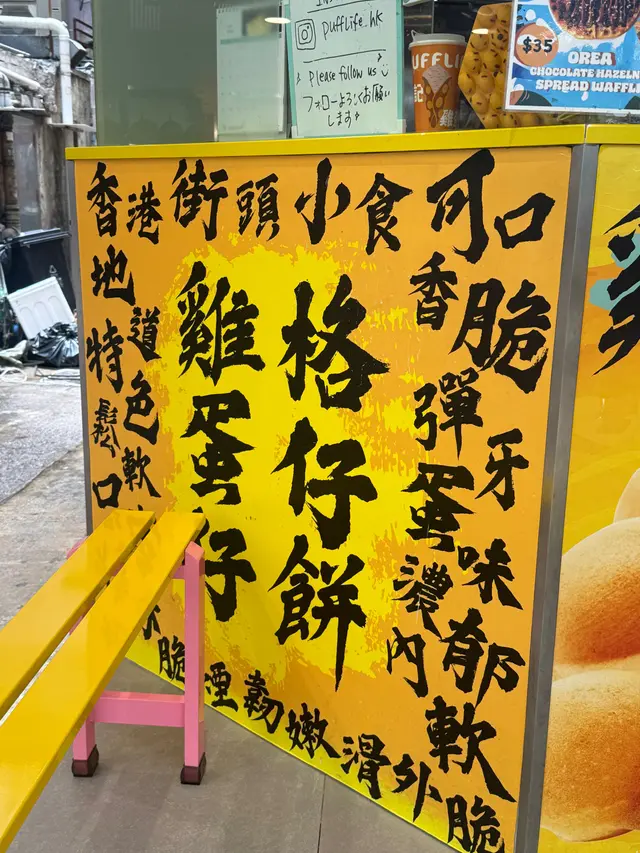 puffLife_hk
Please follow us
フォローよろしくお願い
します
UFFLI
記
$35
OREA
CHOCOLATE HAZELN
SPREAD WAFFL
香港街頭小食可口
地道
特色
鬆軟
口
雞蛋仔
格仔餅
香脆
彈牙
蛋味
濃郁
內軟
脆煙韌嫩滑外脆